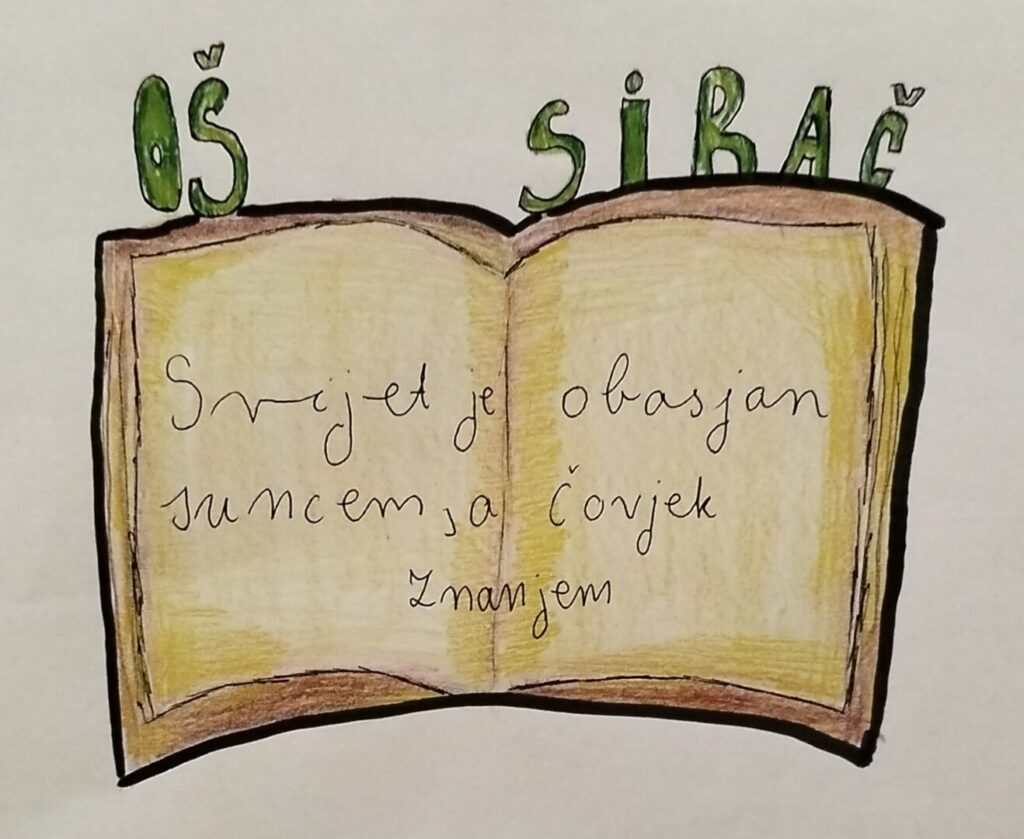 OŠ SiRAČ
Svijet je obasjan
suncem, a čovjek
znanjem